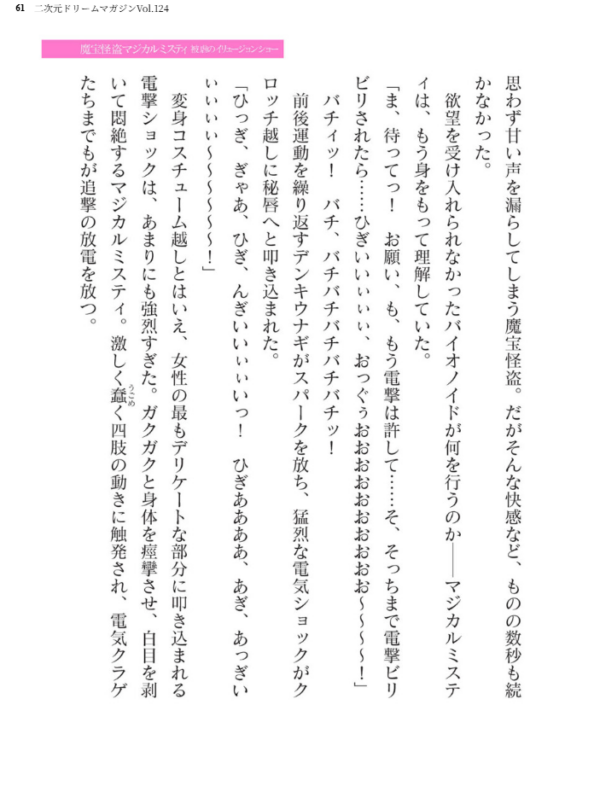 61 二次元ドリームマガジンVol.124
魔宝怪盗マジカルミスティ 
思わず甘い声を漏らしてしまう魔宝怪盗。だがそんな快感など、ものの数秒も続
かなかった。
　欲望を受け入れられなかったバイオノイドが何を行うのか――マジカルミステ
ィは、もう身をもって理解していた。
「ま、待ってっ！　お願い、も、もう電撃は許して……そ、そっちまで電撃ビリ
ビリされたら……ひぎぃいぃぃぃ、おっぐぅおおおおおおおおおお～～～～！」
　バチィッ！　バチ、バチバチバチバチバチッ！
　前後運動を繰り返すデンキウナギがスパークを放ち、猛烈な電気ショックがク
ロッチ越しに秘唇へと叩き込まれた。
「ひっぎ、ぎゃあ、ひぎ、んぎいいぃぃいっ！　ひぎああああ、あぎ、あっぎい
ぃぃぃぃ～～～～～～！」
　変身コスチューム越しとはいえ、女性の最もデリケートな部分に叩き込まれる
電撃ショックは、あまりにも強烈すぎた。ガクガクと身体を痙攣させ、白目を剥
いて悶絶するマジカルミスティ。激しく蠢く四肢の動きに触発され、電気クラゲ
うごめ
たちまでもが追撃の放電を放つ。